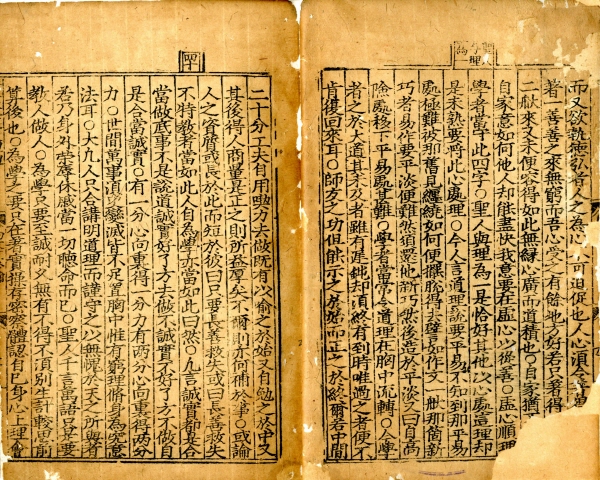 而又欲執德弘者人之為心不可迫促也人心須令著
者一善善之來無窮而吾心受之有餘地方好若只著得
一獻來又未便容得如此無緣心廣而道積也○自家猶
自家意如何他人却能盡快我意要在虛心以從善○虛心順理
學者當守此四字○聖人與理為一是恰好其他以心處這理却
是未熟要將此心處理○今人言道理說要平易不知到那平易
處極難被那舊習纏繞如何便擺脫得去譬如作文一般那箇新
巧者易作要平淡便難然須還他新巧然後造於平淡又曰自高
險處移下平易處甚難○學者常常令道理在胸中流轉○今學
者之於大道其未及者雖有遲鈍却須終有到時唯過之者便不
肯復回來耳○師友之功但能示之於始而正之於終爾若中間
二十分工夫自用喫力去做既有以喻之於始又自勉之於中又
其後得人商量是正之則所益厚矣不爾則亦何補於事○或論
人之資質或長於此而短於彼曰只要長善救失或曰長善救失
不特教者當如此人自為學亦當如此曰然○凡言誠實都是合
當做底事不是說道誠實好了方去做不誠實不好了方不做自
是合當誠實○有一分心向裏得一分力有兩分心向裏得兩分
力○世間萬事須臾變滅皆不足置胸中惟有窮理脩身為究竟
法耳○大凡人只合講明道理而謹守之以無愧於天之所與者
若乃身外榮辱休戚當一切聽命而已○聖人千言萬語只是要
教人做人○為學只要至誠耐久無有不得不須別生計較思前
算後也○為學之要只在著實操存密密體認自己身心上理會